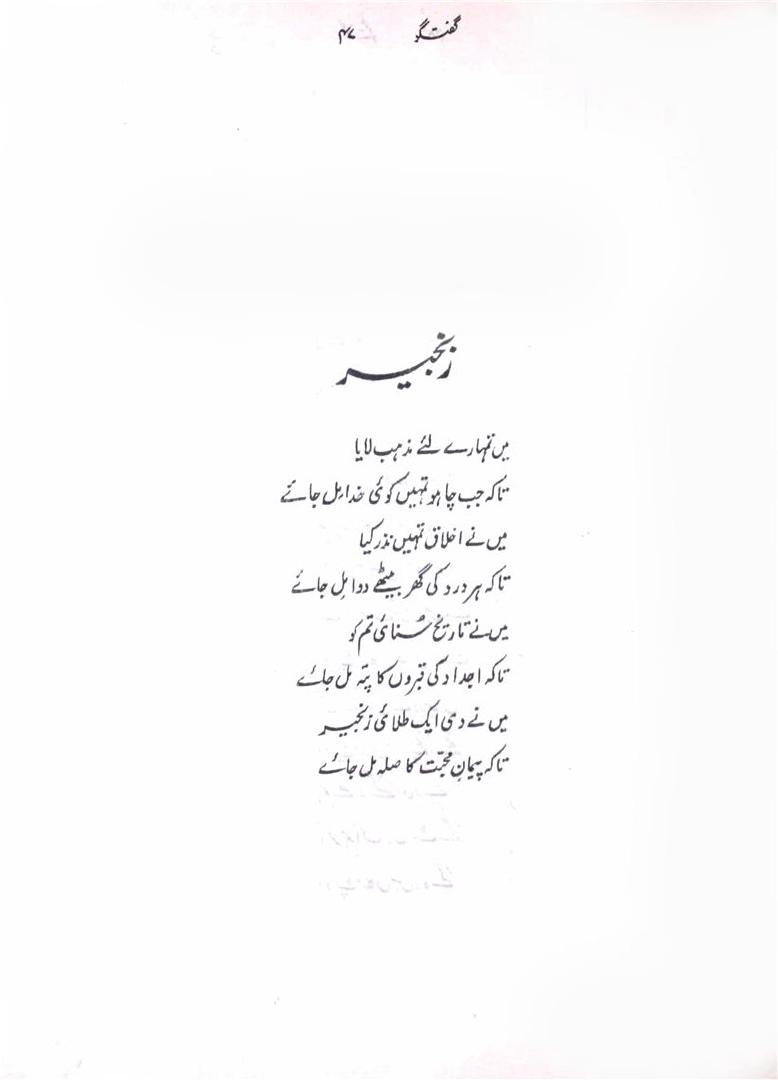 گفتگو ۴۷
زنجیر
میں تمہارے لئے مذہب لایا
تاکہ جب چاہو تمہیں کوئی خدا مِل جائے
میں نے اخلاق تمہیں نذر کیا
تاکہ ہر درد کی گھر بیٹھے دوا مِل جائے
میں نے تاریخ سُنائی تم کو
تاکہ اجداد کی قبروں کا پتہ مل جائے
میں نے دی ایک طلائی زنجیر
تاکہ پیمانِ محبّت کا صلہ مل جائے